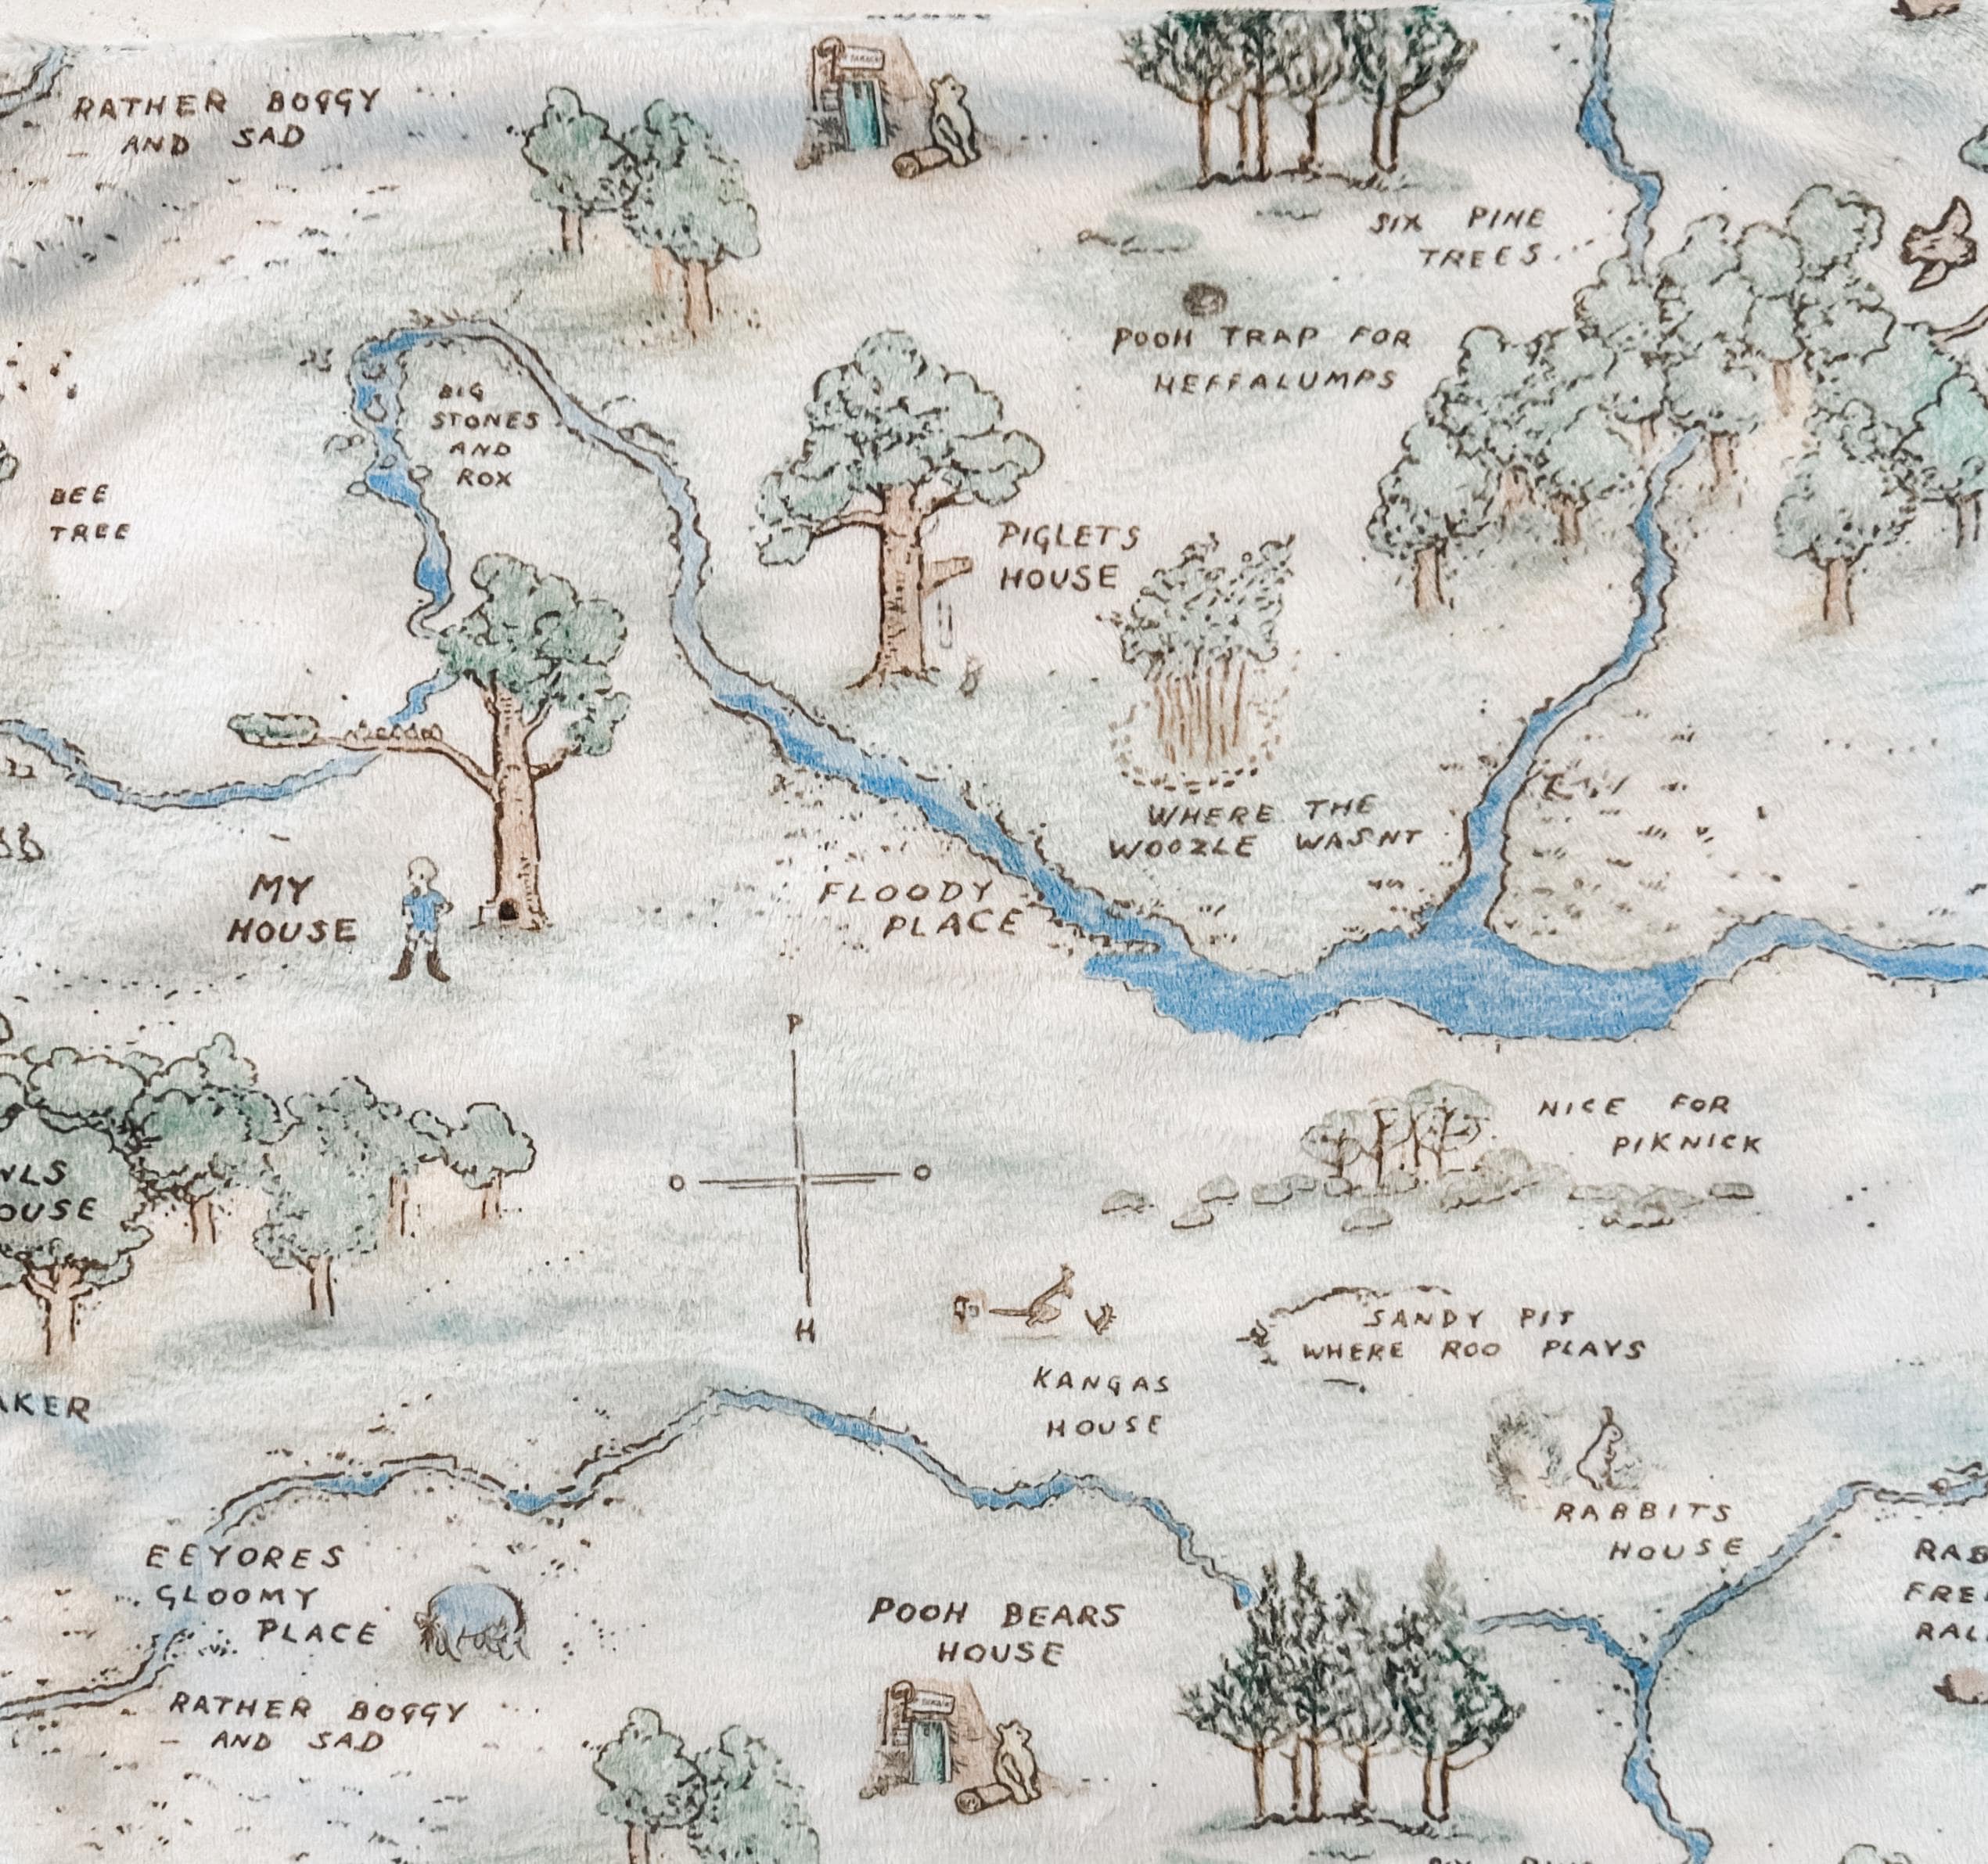 RATHER BOGGY
AND SAD
SIX PINE
TREES
POOH TRAP FOR
HEFFALUMPS
BIG
STONES
AND
ROX
BEE
TREE
PIGLETS
HOUSE
WHERE THE
WOOZLE WASNT
MY
HOUSE
FLOODY
PLACE
P
O O
H
NICE FOR
PIKNICK
WLS
OUSE
SANDY PIT
WHERE ROO PLAYS
KANGAS
HOUSE
AKER
RABBITS
HOUSE
EEYORES
GLOOMY
PLACE
RAB
FRE
RAL
POOH BEARS
HOUSE
RATHER BOGGY
AND SAD